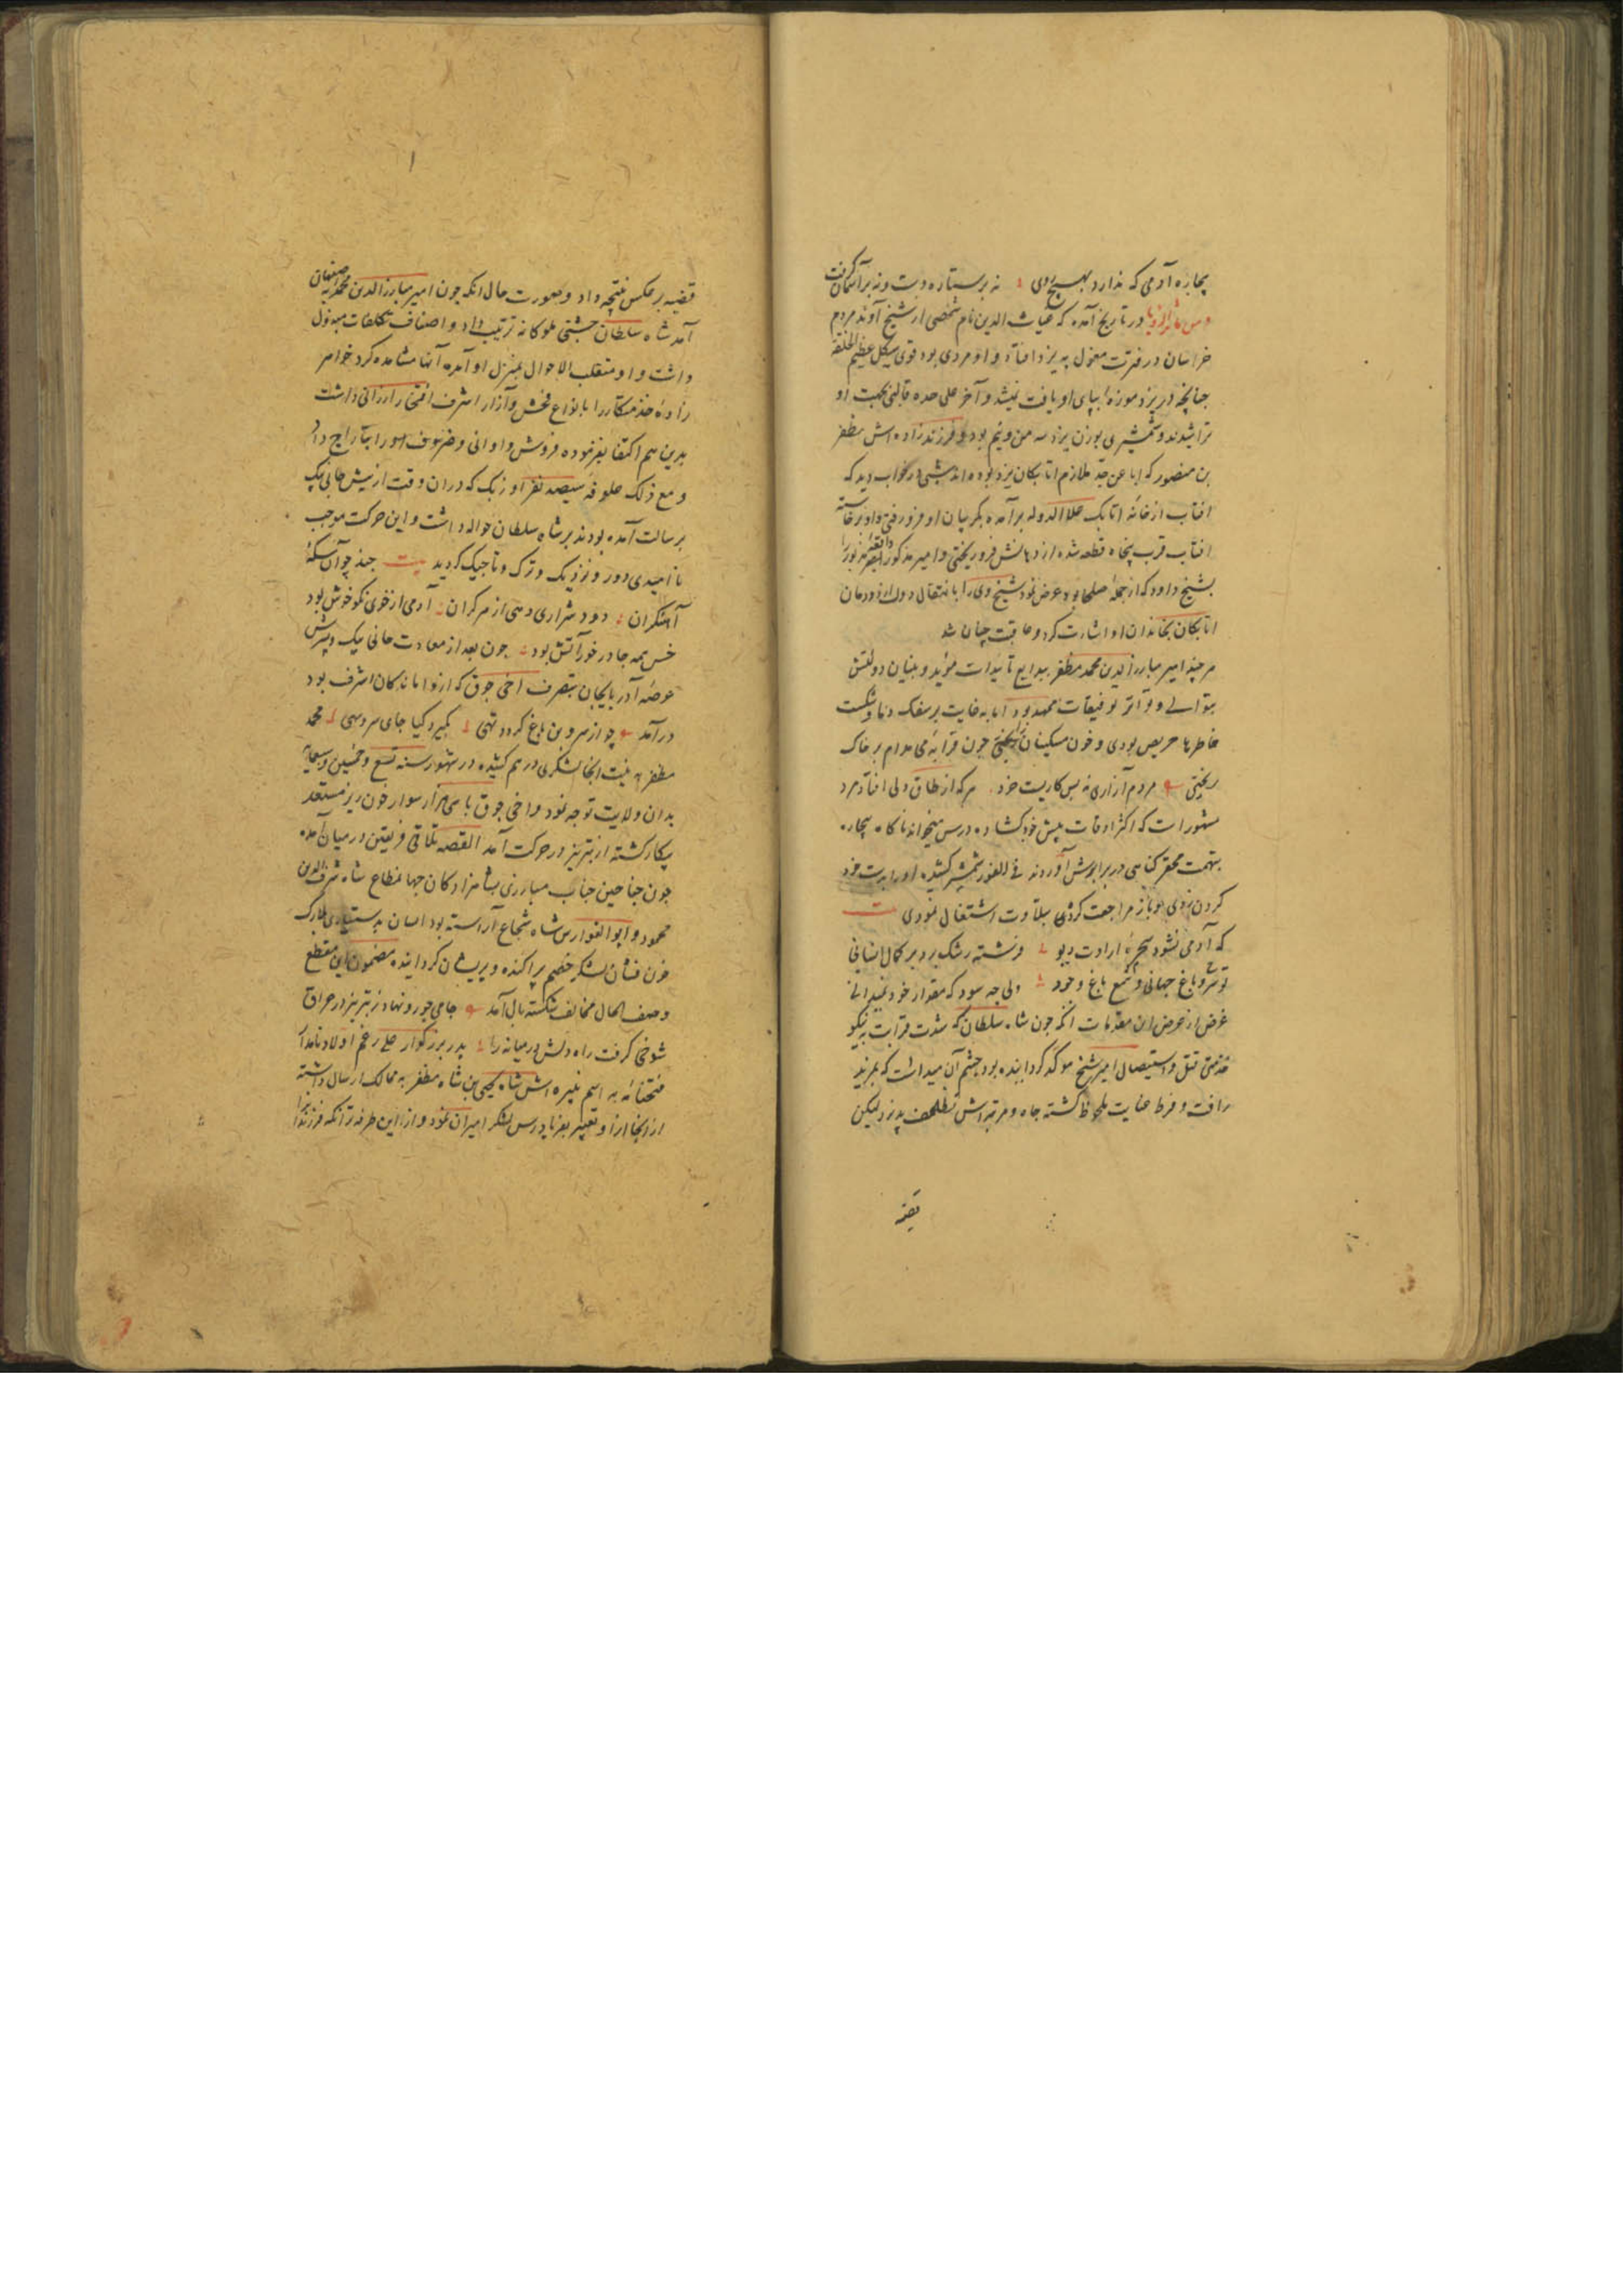 بیچاره آدمی که ندارد بهیچ روی نه بر ستاره دست و نه بر آسمان گرفت
در تاریخ آمده که غیاث الدین نام شخصی از شیخ آوند مردم
خراسان در فترت مغول به یزد افتاد و او مردی بود قوی هیکل عظیم الخلقه
چنانچه در یزد موزه بپای او یافت نیشد و آخر علی حده قالبی بجهت او
تراشیدند و شمشیری بوزن یزد سه من و نیم بود و فرزندزاده اش مظفر
بن منصور که ابا عن جد ملازم اتابکان یزد بوده اند شبی در خواب دید که
افتاب از خانه اتابک علاالدوله برآمده بگریبان او فرو رفتی و او برخاسته
افتاب قرب پنجاه قطعه شده از دامانش فرو ریختی و امیر مذکور
بشیخ داود که از جمله صلحا بود عرض نمود شیخ وی را بانتقال دولت از دودمان
اتابکان بخاندان او اشارت کرد و عاقبت چنان شد
هر چند امیر مبارزالدین محمد مظفر ببدایع تأییدات مؤید و بنیان دولتش
بتوالی و تواتر توفیقات ممهد بود اما به غایت بر سفک دما و شکست
خاطرها حریص بودی و خون مسکینان چون قرابه می مدام بر خاک
ریختی مردم آزاری نه بس کاریست خرد هر که از طاق دلی افتاد مرد
مشهور است که اکثر اوقات پیش خود کشاده درس میخواند ناکاه بیچاره
بتهمت محقر کناهی در برابرش آوردند فی الفور شمشیر کشیده او را بدست خود
کردن زدی و باز مراجعت کردی بتلاوت اشتغال نمودی بیت
که آدمی نشود سخره ارادت دیو فرشته رشک برد بر کمال انسانی
تو سرو باغ جهانی و شمع باغ وجود ولی چه سود که مقدار خود نمیدانی
غرض از عرض این مقدمات آنکه چون شاه سلطان که شدت قرابت به نیکو
خدمتی قتل و استیصال امیر شیخ موکد کردانیده بود چشم آن میداشت که بمزید
رافت و فرط عنایت ملحوظ کشته جاه و مرتبه اش تضاعف پذیرد لیکن
قضیه
قضیه بر عکس نتیجه داد و صورت حال آنکه چون امیر مبارزالدین محمد به اصفهان
آمد شاه سلطان جشنی ملوکانه ترتیب داد و اصناف تکلفات مبذول
داشت و او منقلب الاحوال بمنزل او آمده آنها مشاهده کرد خواهر
زاده خدمتکار را بانواع فحش و آزار اشرف افتخار ارزانی داشت
بدین هم اکتفا نفرموده فروش و اوانی و ظروف او را بتاراج داد
و مع ذلک علوفه سیصد نفر اوزبک که دران وقت از پیش جانی بیک
برسالت آمده بودند بر شاه سلطان حواله داشت و این حرکت موجب
نا امیدی دور و نزدیک و ترک و تاجیک کردید بیت چند چو آن سکه
آهنکران دود شراری دهی از هر کران آدمی از خوی نکو خوش بود
خس همه جا در خور آتش بود چون بعد از معاودت جانی بیک و پسرش
عرصه آذربایجان بتصرف اخی جوق که از نوابانکان اشرف بود
درآمد چو از سرو بن باغ کردد تهی بکیرد کیا جای سرو سهی محمد
مظفر به نیت آنجا لشکری درهم کشیده در شهور سنه تسع و خمسین و سبعمایة
بدان ولایت توجه نمود و اخی جوق با سی هزار سوار خون ریز مستعد
پیکار کشته از تبریز در حرکت آمد القصه تلاقی فریقین در میان آمده
چون جناحین جناب مبارزی بشاهزادکان جهانمطاع شاه شرف الدین
محمود و ابوالفوارس شاه شجاع آراسته بود ایشان بدستیاری
خون فشان لشکر خصم پراکنده و پریشان کردانیده مضمون این مقطع
وصف الحال مخالف شکسته بال آمد جامی چو رو نهاد ز تبریز در عراق
شوخی کرفت راه دلش در میانه را پدر بزرکوار علی رغم اولاد نامدار
فتحنامه به اسم نبیره اش شاه یحیی بن شاه مظفر به ممالک ارسال داشته
از آنجا او را تعیین بفریادرس لشکر امیران نمود و از این طرفه تر آنکه فرزند